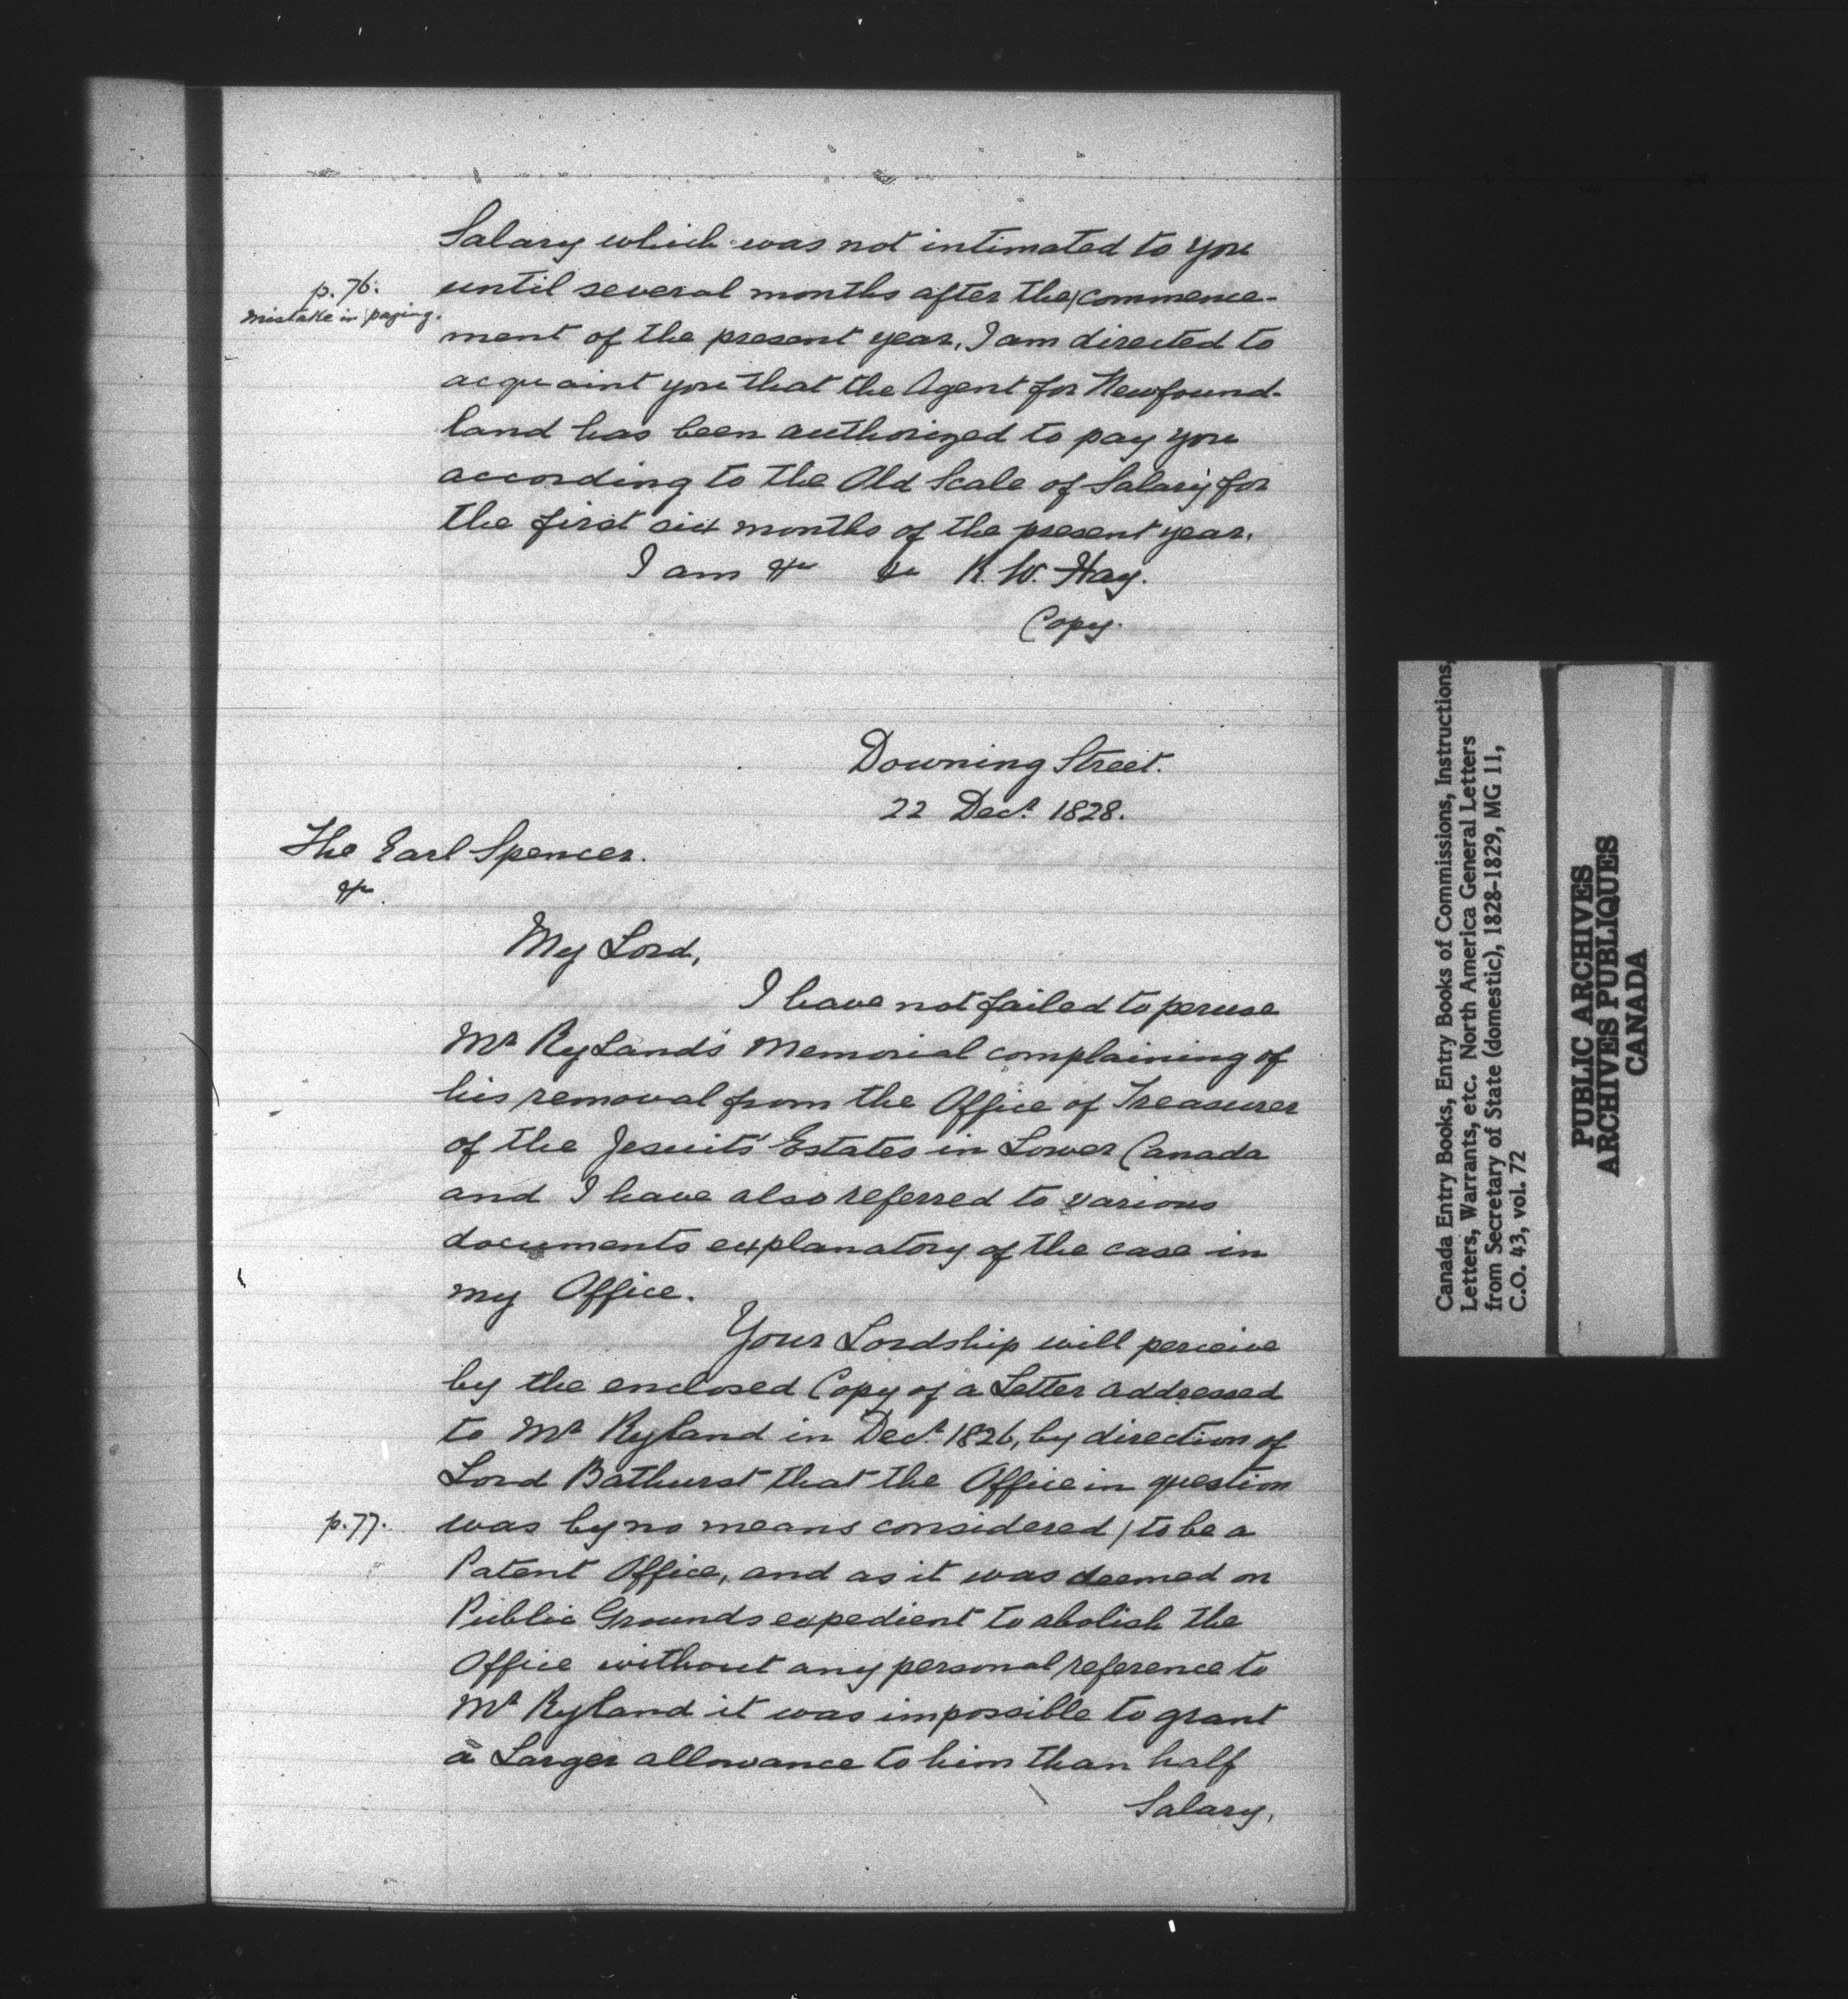 Salary which was not intimated to you
p. 76.
mistake in paging.
until several months after the/commence-
ment of the present year, I am directed to
acquaint you that the Agent for Newfound-
land has been authorized to pay you
according to the Old Scale of Salary for
the first six months of the present year.
I am &c &c R. W. Hay.
Copy.
Downing Street.
22 Decr. 1828.
The Earl Spencer.
&c.
My Lord,
I have not failed to peruse
Mr Ryland's Memorial complaining of
his removal from the Office of Treasurer
of the Jesuits' Estates in Lower Canada
and I have also referred to various
documents explanatory of the case in
my Office.
Your Lordship will perceive
by the enclosed Copy of a Letter addressed
to Mr Ryland in Decr. 1826, by direction of
Lord Bathurst that the Office in question
p. 77.
was by no means considered / to be a
Patent Office, and as it was deemed on
Public Grounds expedient to abolish the
Office without any personal reference to
Mr Ryland it was impossible to grant
a Larger allowance to him than half
Salary,
Canada Entry Books, Entry Books of Commissions, Instructions,
Letters, Warrants, etc. North America General Letters
from Secretary of State (domestic), 1828-1829, MG 11,
C.O. 43, vol. 72
PUBLIC ARCHIVES
ARCHIVES PUBLIQUES
CANADA